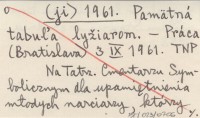 (ji) 1961. Pamätná
tabuľa lyžiarom. – Práca
(Bratislava) 3 IX 1961. TNP
Na Tatrz. Cmentarzu Sym-
bolicznym dla upamiętnienia
młodych narciarzy, którzy